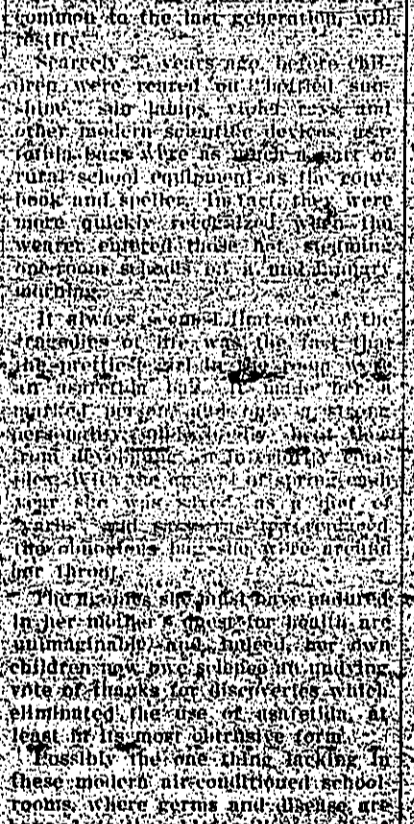 common to the last generation, will
testify.
Scarcely 25 years ago, before chil-
dren were reared on bottled sun-
shine, sun lamps, violet rays and
other modern scientific devices, asa-
fetida bags were as much a part of
rural school equipment as the
book and speller. In fact, they were
more quickly recognized when the
wearer entered those hot, steaming
one-room schools on a mid-January
morning.
It always seemed that one of the
tragedies of life was the fact that
the prettiest girl in the room wore
an asafetida bag. It made her a
marked person and only a strong
personality
from developing an inferiority com-
plex. With the arrival of spring each
year she was
and
the obnoxious bag she wore around
her throat.
The agonies she must have endured
in her mother's quest for health are
unimaginable and, indeed, her own
children now owe science an undying
vote of thanks for discoveries which
eliminated the use of asafetida, at
least in its most obtrusive form.
Possibly the one thing lacking in
these modern air-conditioned school-
rooms, where germs and disease are